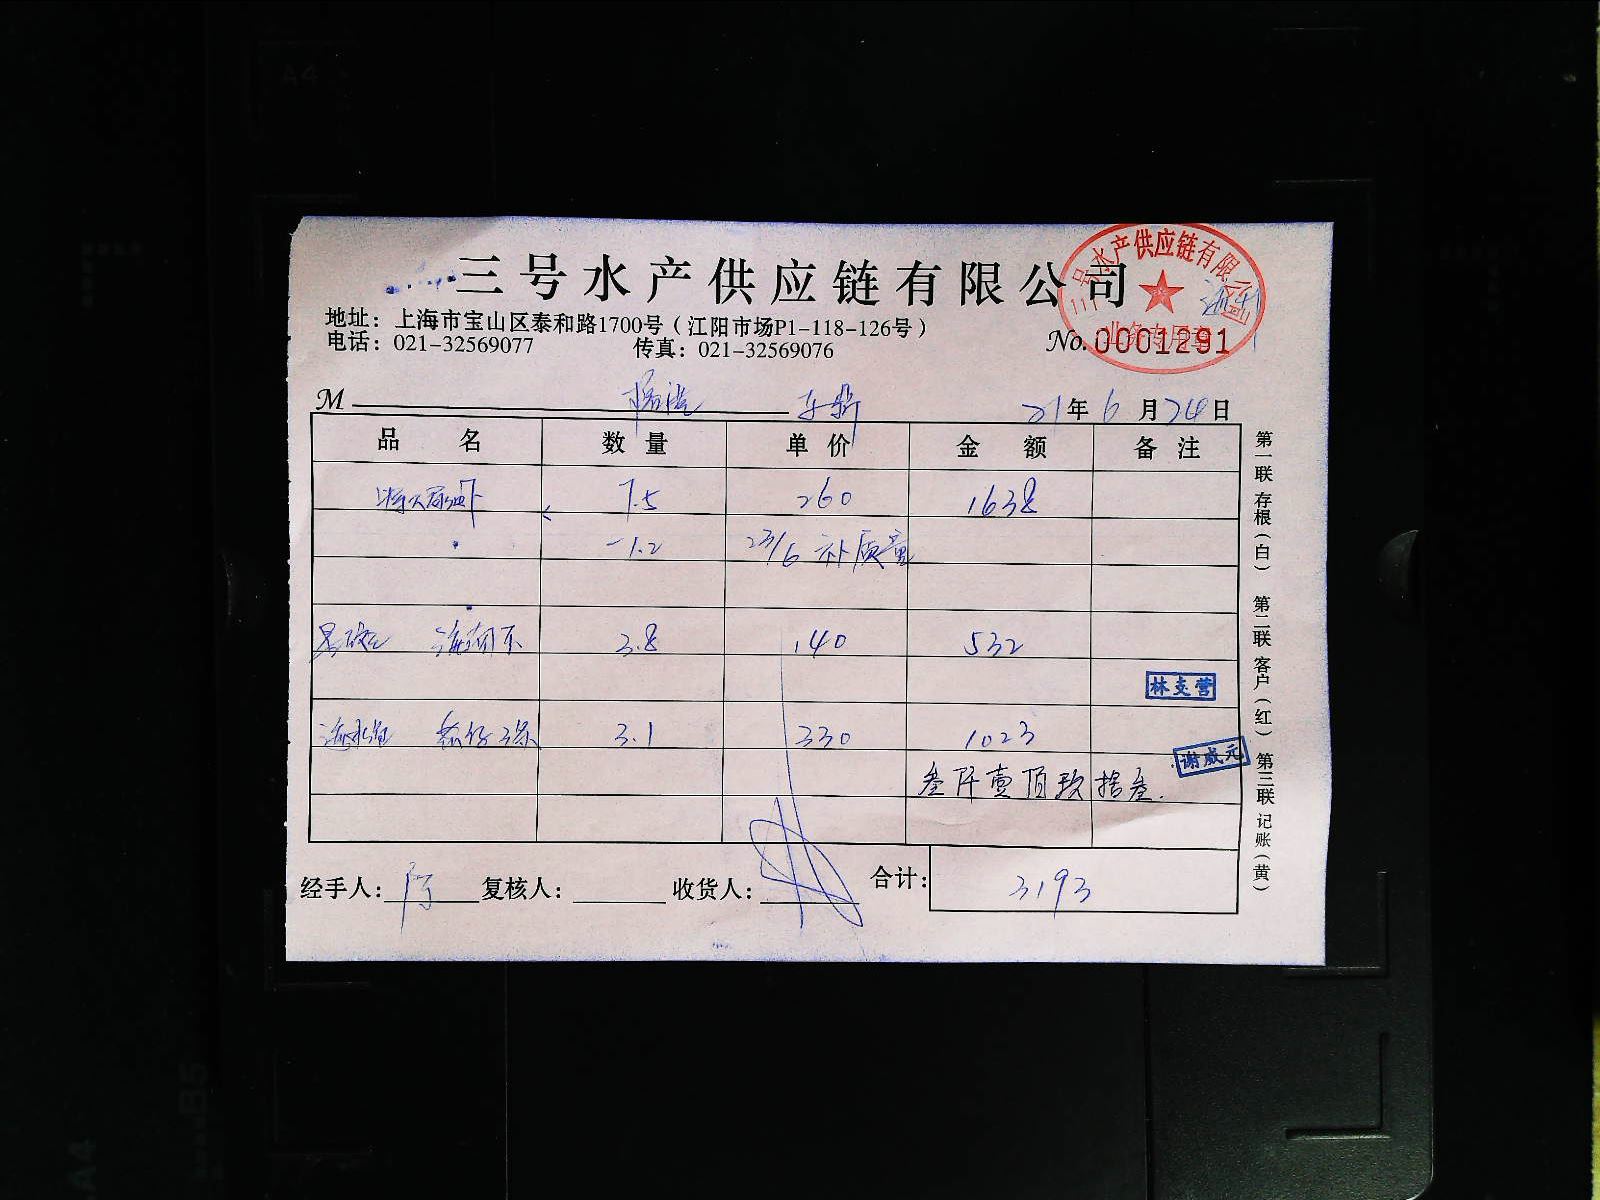 三号水产供应链有限公司
地址：上海市宝山区泰和路1700号（江阳市场P1-118-126号）
电话：021-32569077 传真：021-32569076
号水产供应链有限公司
业务专用章
No. 0001291
M 21年6月24日
品名 数量 单价 金额 备注
7.5 260 1638
-1.2 23/6 补质量
3.8 140 532
林支营
3.1 330 1023
谢威元
叁仟壹佰玖拾叁.
经手人： 复核人： 收货人： 合计：3193
第一联 存根（白） 第二联 客户（红） 第三联 记账（黄）
A4
B5
A4